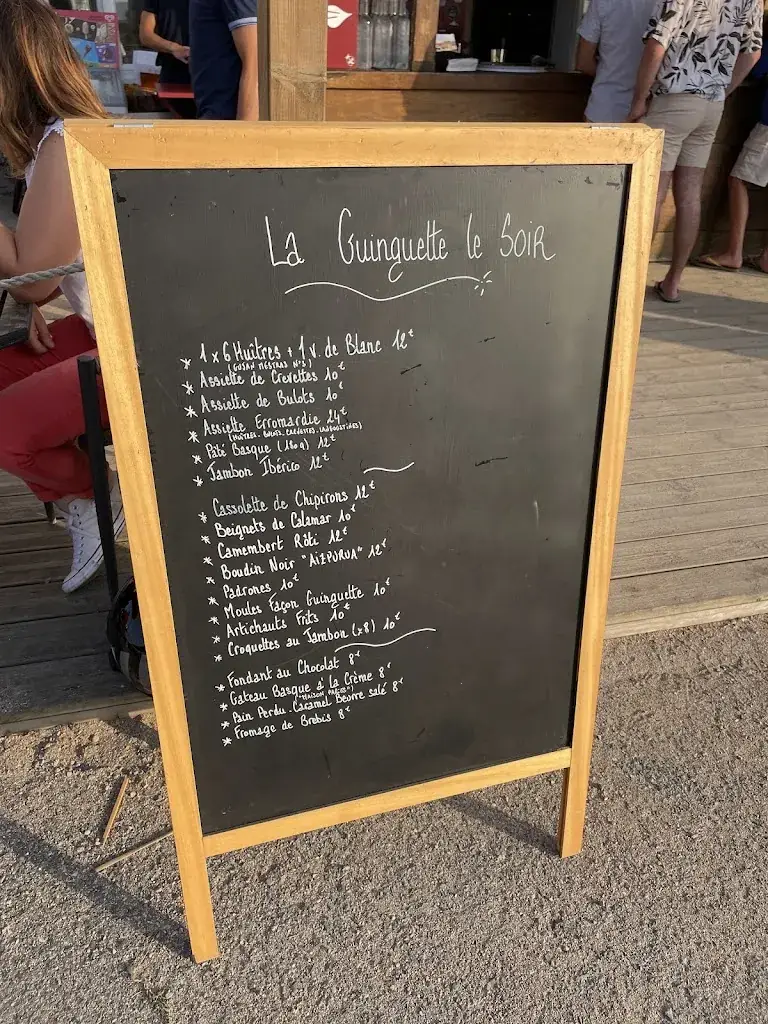 La Guinguette le SOIR
* 1 x 6 Huîtres + 1 v. de Blanc 12€
(GUJAN MESTRAS N°3)
* Assiette de Crevettes 10€
* Assiette de Bulots 10€
* Assiette Erromardie 24€
(HUÎTRES. BULOTS. CREVETTES. LANGOUSTINES)
* Pâté Basque (180g) 12€
* Jambon Ibérico 12€
* Cassolette de Chipirons 12€
* Beignets de Calamar 10€
* Camembert Rôti 12€
* Boudin Noir "AIZPURUA" 12€
* Padrones 10€
* Moules Façon Guinguette 10€
* Artichauts Frits 10€
* Croquettes au Jambon (x8) 10€
* Fondant au Chocolat 8€
* Gateau Basque à la Crème 8€
* Pain Perdu - Caramel Beurre salé 8€
* Fromage de Brebis 8€